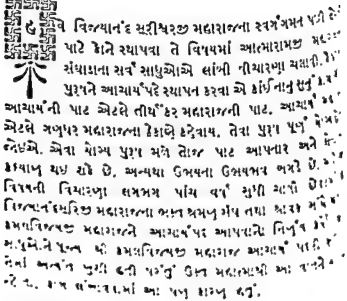 હવે વિજયાનંદ સૂરીશ્વરજી મહારાજના સ્વર્ગગમન પછી
પાટે કોને સ્થાપવા તે વિષયમાં આત્મારામજી
સંઘાડાના સર્વ સાધુઓએ લાંબી વીચારણા ચલાવી.
પુરૂષને આચાર્યપદે સ્થાપન કરવા એ કાંઈ નાનું સુનું
આચાર્યની પાટ એટલે તીર્થંકર મહારાજની પાટ. આચાર્ય
એટલે ગણધર મહારાજના ઠેકાણે કહેવાય. તેવા પુરૂષ પૂર્ણ
જોઈએ. એવા યોગ્ય પુરૂષ મળે તોજ પાટ આપનાર અને
કલ્યાણ થઈ શકે છે. અન્યથા ઉભયના ઉભયભવ બગડે છે.
વિષયની વિચારણા લગભગ પાંચ વર્ષ સુધી ચાલી
વિજયાનંદસૂરિજી મહારાજના શ્રમણ સંઘ તથા શ્રાવક
કમલવિજયજી મહારાજને આચાર્યપદ આપવાનો નિર્ણય
પૂજ્ય શ્રી કમલવિજયજી મહારાજ આચાર્ય
અત્યંત ખુશી હતી પરંતુ ઉક્ત મહાત્માશ્રી આ
આ પણ કારણ હતું.